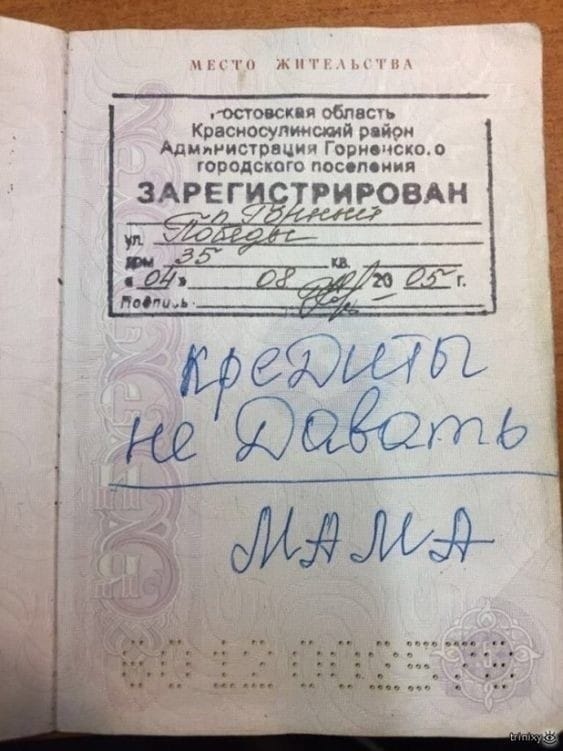 МЕСТО ЖИТЕЛЬСТВА
Ростовская область
Красносулинский район
Администрация Горненского
городского поселения
ЗАРЕГИСТРИРОВАН
п. Горный
ул. Победы
дом 35 кв.
« 04 » 08 20 05 г.
Подпись
кредиты
не давать
МАМА
trinixy